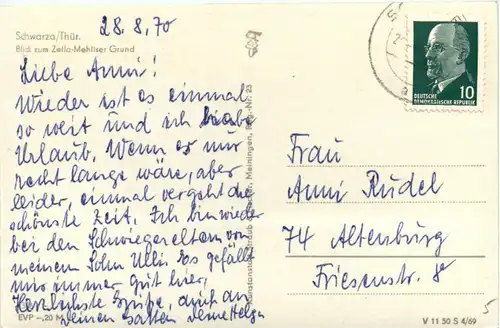 28.8.70
Schwarza/Thür.
Blick zum Zella-Mehliser Grund
Liebe Anni!
Wieder ist es einmal
so weit und ich habe
Urlaub. Wenn es nur
recht lange wäre, aber
leider, einmal vergeht die
schönste Zeit. Ich bin wieder
bei den Schwiegereltern von
meinem Sohn Ulli. Es gefällt
mir immer gut hier,
Herzlichste Grüße, auch an
Deinen Gatten Deine Helga
EVP -,20 M
Meiningen,
DEUTSCHE
DEMOKRATISCHE REPUBLIK
10
Frau
Anni Rudel
74 Altenburg
Friesenstr. 8
V 11 50 S 4/69
5